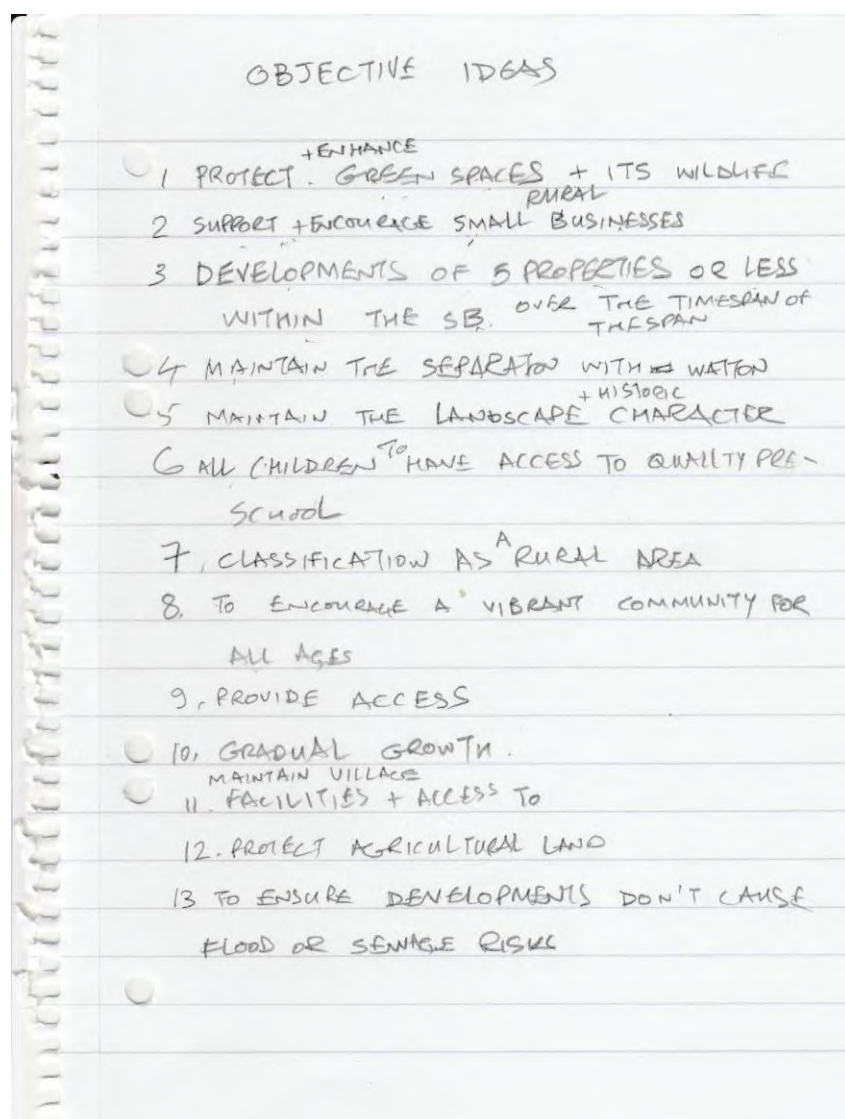 OBJECTIVE IDEAS
+ ENHANCE
1 PROTECT . GREEN SPACES + ITS WILDLIFE
RURAL
2 SUPPORT + ENCOURAGE SMALL BUSINESSES
3 DEVELOPMENTS OF 5 PROPERTIES OR LESS
WITHIN THE SB. OVER THE TIMESPAN OF
THE SPAN
4 MAINTAIN THE SEPARATON WITH WATTON
+ HISTORIC
5 MAINTAIN THE LANDSCAPE CHARACTER
6 ALL CHILDREN TO HAVE ACCESS TO QUALITY PRE-
SCHOOL
7, CLASSIFICATION AS A RURAL AREA
8. TO ENCOURAGE A VIBRANT COMMUNITY FOR
ALL AGES
9, PROVIDE ACCESS
10, GRADUAL GROWTH.
MAINTAIN VILLAGE
11. FACILITIES + ACCESS TO
12. PROTECT AGRICULTURAL LAND
13 TO ENSURE DEVELOPMENTS DON'T CAUSE
FLOOD OR SEWAGE RISKS